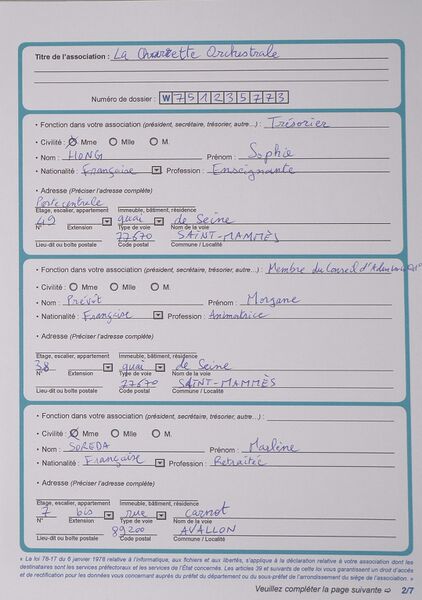 Titre de l'association : La Charette Orchestrale
Numéro de dossier : W 7 5 1 2 3 5 7 7 3
• Fonction dans votre association (président, secrétaire, trésorier, autre...) : Trésorier
• Civilité : Mme Mlle M.
• Nom : HONG Prénom : Sophie
• Nationalité : Française Profession : Enseignante
• Adresse (Préciser l'adresse complète)
Porte centrale
Etage, escalier, appartement Immeuble, bâtiment, résidence
49 quai de Seine
N° Extension Type de voie Nom de la voie
77670 SAINT-MAMMÈS
Lieu-dit ou boîte postale Code postal Commune / Localité
• Fonction dans votre association (président, secrétaire, trésorier, autre...) : Membre du Conseil
• Civilité : Mme Mlle M.
• Nom : Prévôt Prénom : Morgane
• Nationalité : Française Profession : Animatrice
• Adresse (Préciser l'adresse complète)
Etage, escalier, appartement Immeuble, bâtiment, résidence
38 quai de Seine
N° Extension Type de voie Nom de la voie
77670 SAINT-MAMMÈS
Lieu-dit ou boîte postale Code postal Commune / Localité
• Fonction dans votre association (président, secrétaire, trésorier, autre...) :
• Civilité : Mme Mlle M.
• Nom : SOREDA Prénom : Marlène
• Nationalité : Française Profession : Retraitée
• Adresse (Préciser l'adresse complète)
Etage, escalier, appartement Immeuble, bâtiment, résidence
7 bis rue carnot
N° Extension Type de voie Nom de la voie
89200 AVALLON
Lieu-dit ou boîte postale Code postal Commune / Localité
« La loi 78-17 du 6 janvier 1978 relative à l'informatique, aux fichiers et aux libertés, s'applique à la déclaration relative à votre association dont les
destinataires sont les services préfectoraux et les services de l'État concernés. Les articles 39 et suivants de cette loi vous garantissent un droit d'accès
et de rectification pour les données vous concernant auprès du préfet du département ou du sous-préfet de l'arrondissement du siège de l'association. »
Veuillez compléter la page suivante ⇨ 2/7